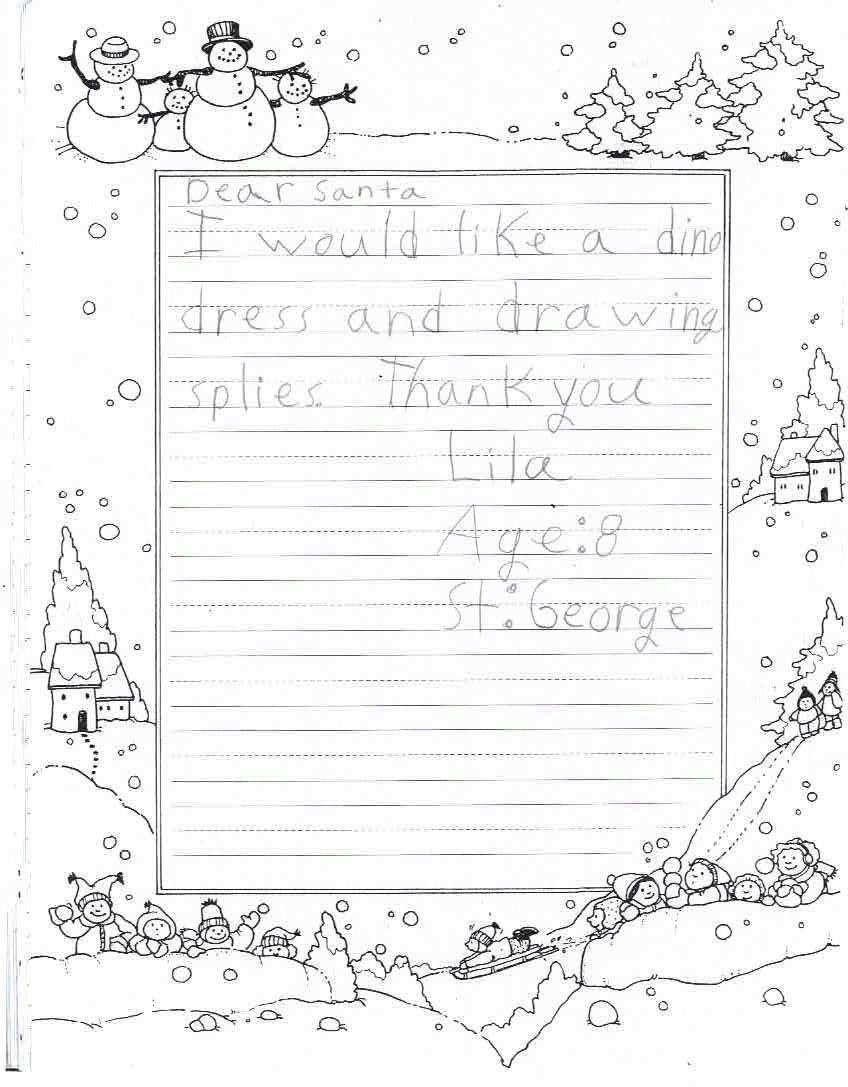 Dear Santa
I would like a dino
dress and drawing
splies. Thank you
Lila
Age:8
St: George